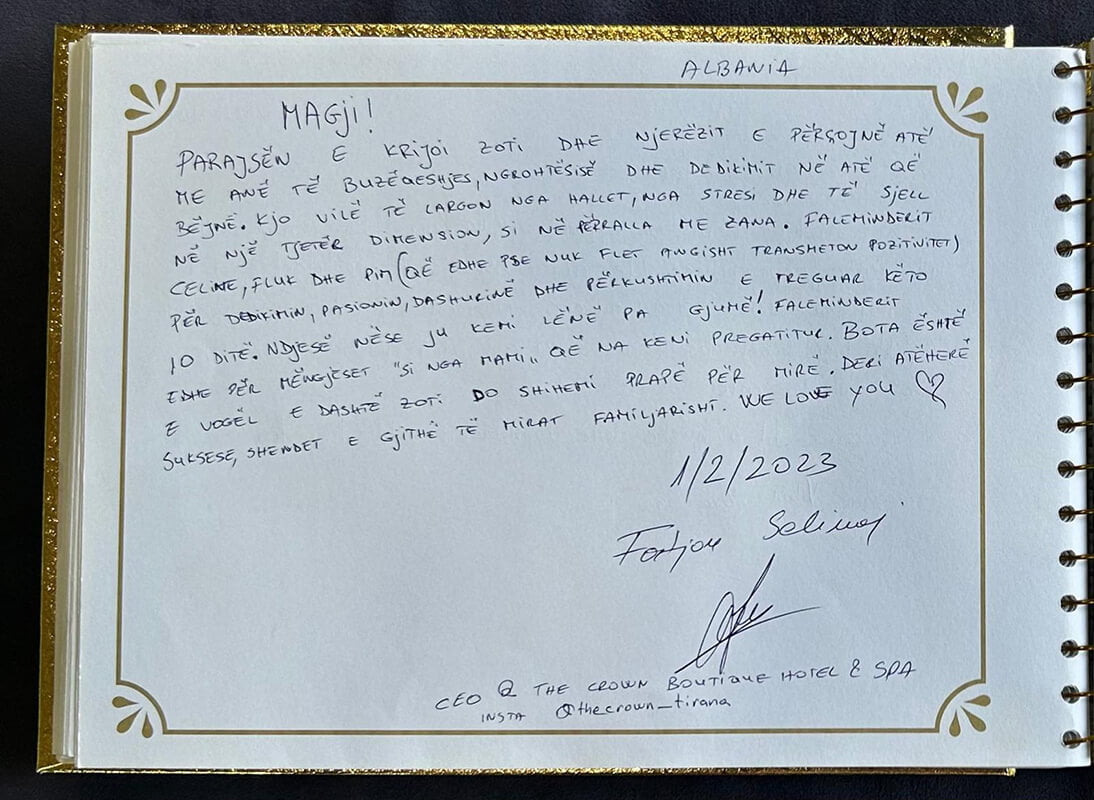 ALBANIA
MAGJI!
PARAJSËN E KRIJOI ZOTI DHE NJERËZIT E PËRSOJNË ATË
ME ANË TË BUZËQESHJES, NGROHTËSISË DHE DEDIKIMIT NË ATË QË
BËJNË. KJO VILË TË LARGON NGA HALLET, NGA STRESI DHE TË SJELL
NË NJË TJETËR DIMENSION, SI NË PËRRALLA ME ZANA. FALEMINDERIT
CELINE, FLUK DHE PIM (QË EDHE PSE NUK FLET ANGISHT TRANSMETON POZITIVITET)
PËR DEDIKIMIN, PASIONIN, DASHURINË DHE PËRKUSHTIMIN E TREGUAR KËTO
10 DITË. NDJESË NËSE JU KEMI LËNË PA GJUMË! FALEMINDERIT
EDHE PËR MËNGJESET "SI NGA MAMI„ QË NA KENI PREGATITUR. BOTA ËSHTË
E VOGËL E DASHTË ZOTI DO SHIHEMI PRAPË PËR MIRË. DERI ATËHERË
SUKSESE, SHENDET E GJITHË TË MIRAT FAMILJARISHT. WE LOVE YOU ♡
1/2/2023
Selimaj
CEO @ THE CROWN BOUTIQUE HOTEL & SPA
INSTA @thecrown_tirana